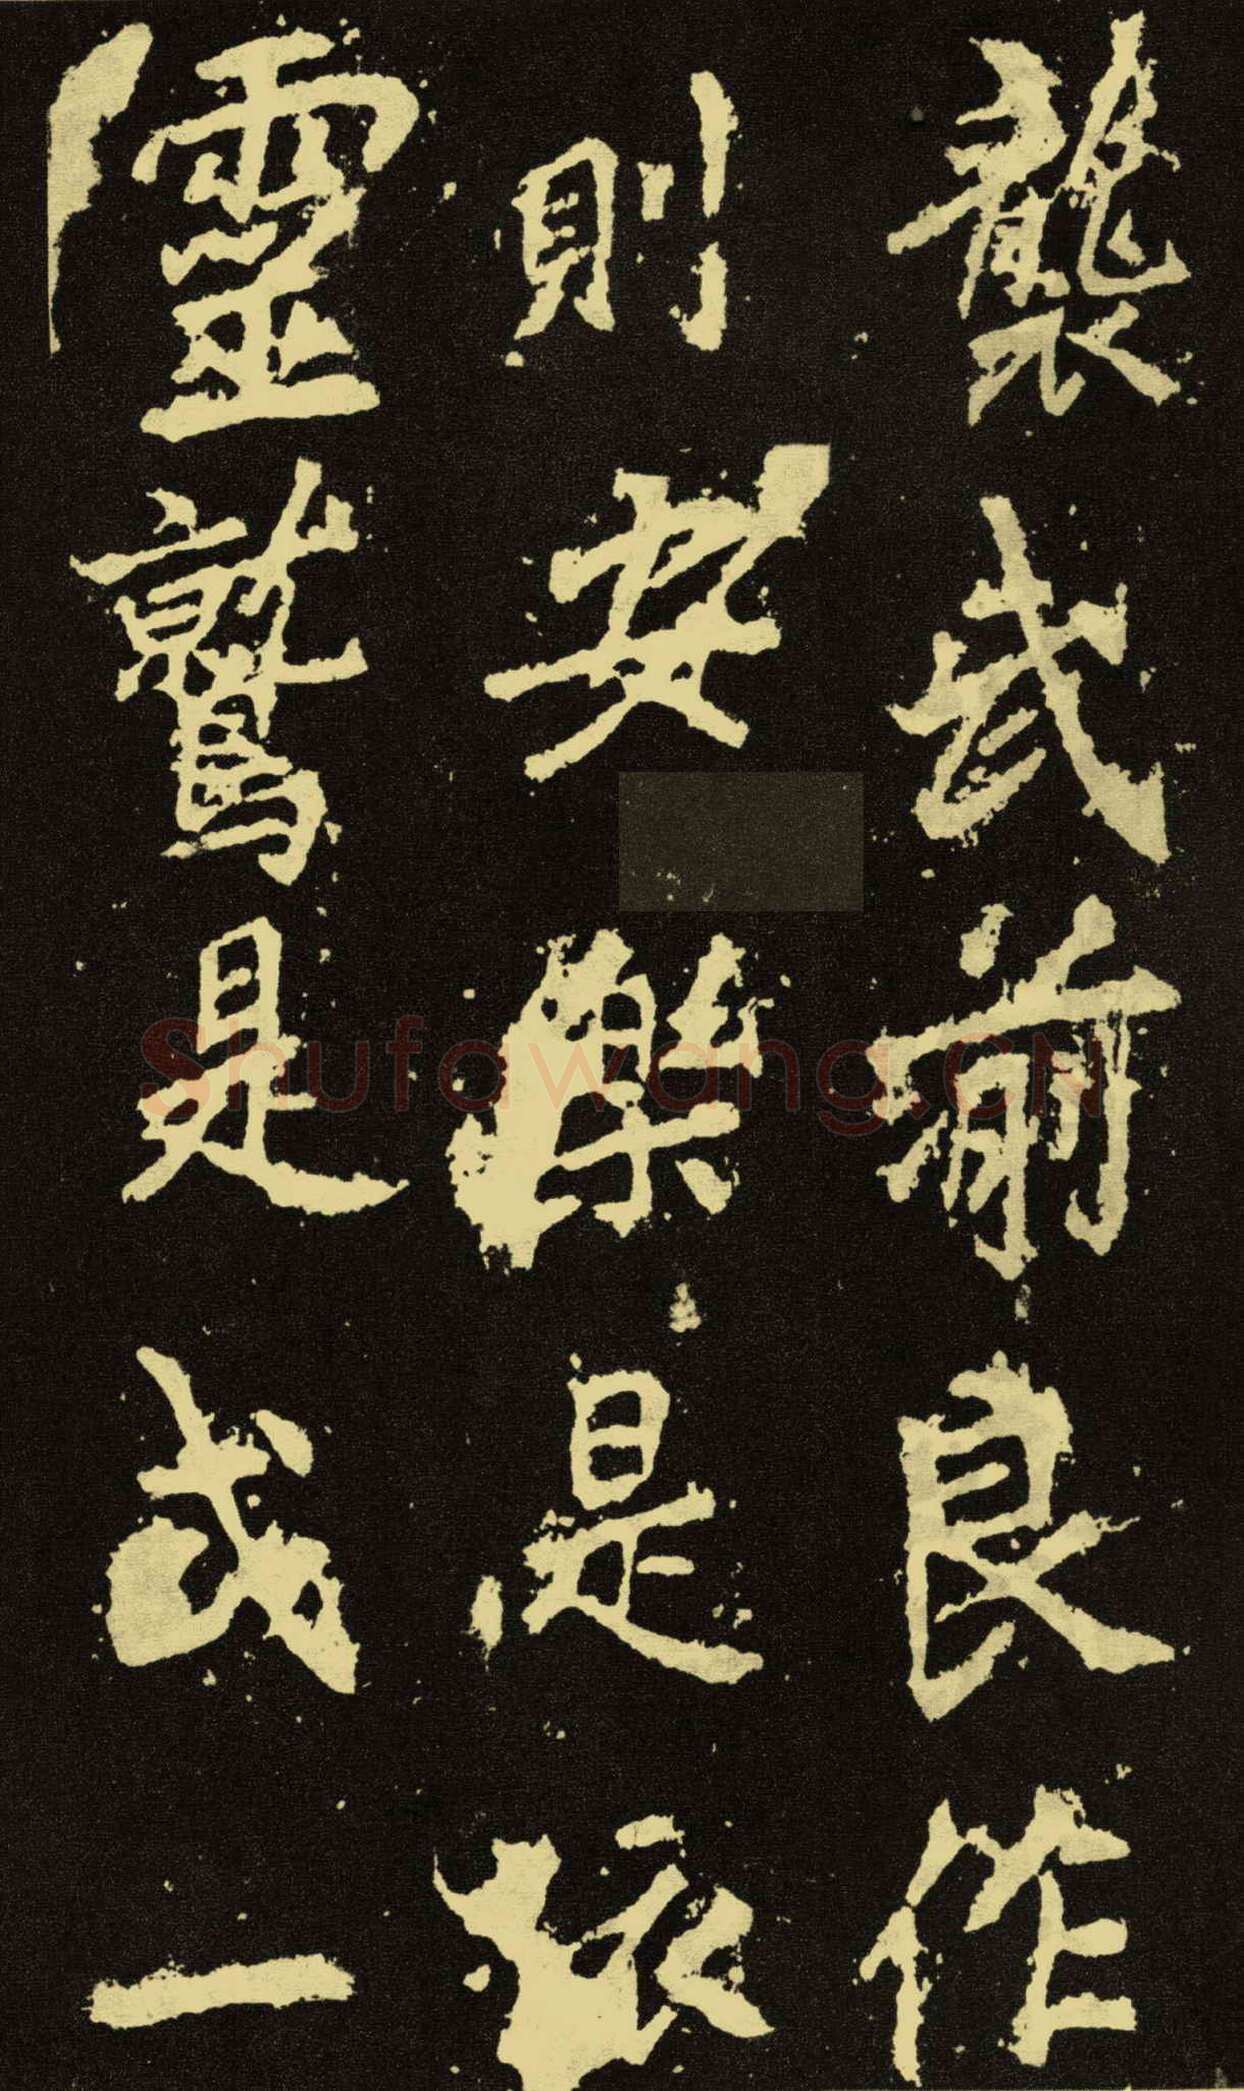 襲武前良作
則安樂是依
靈鷲是式一
Shufawang.CN